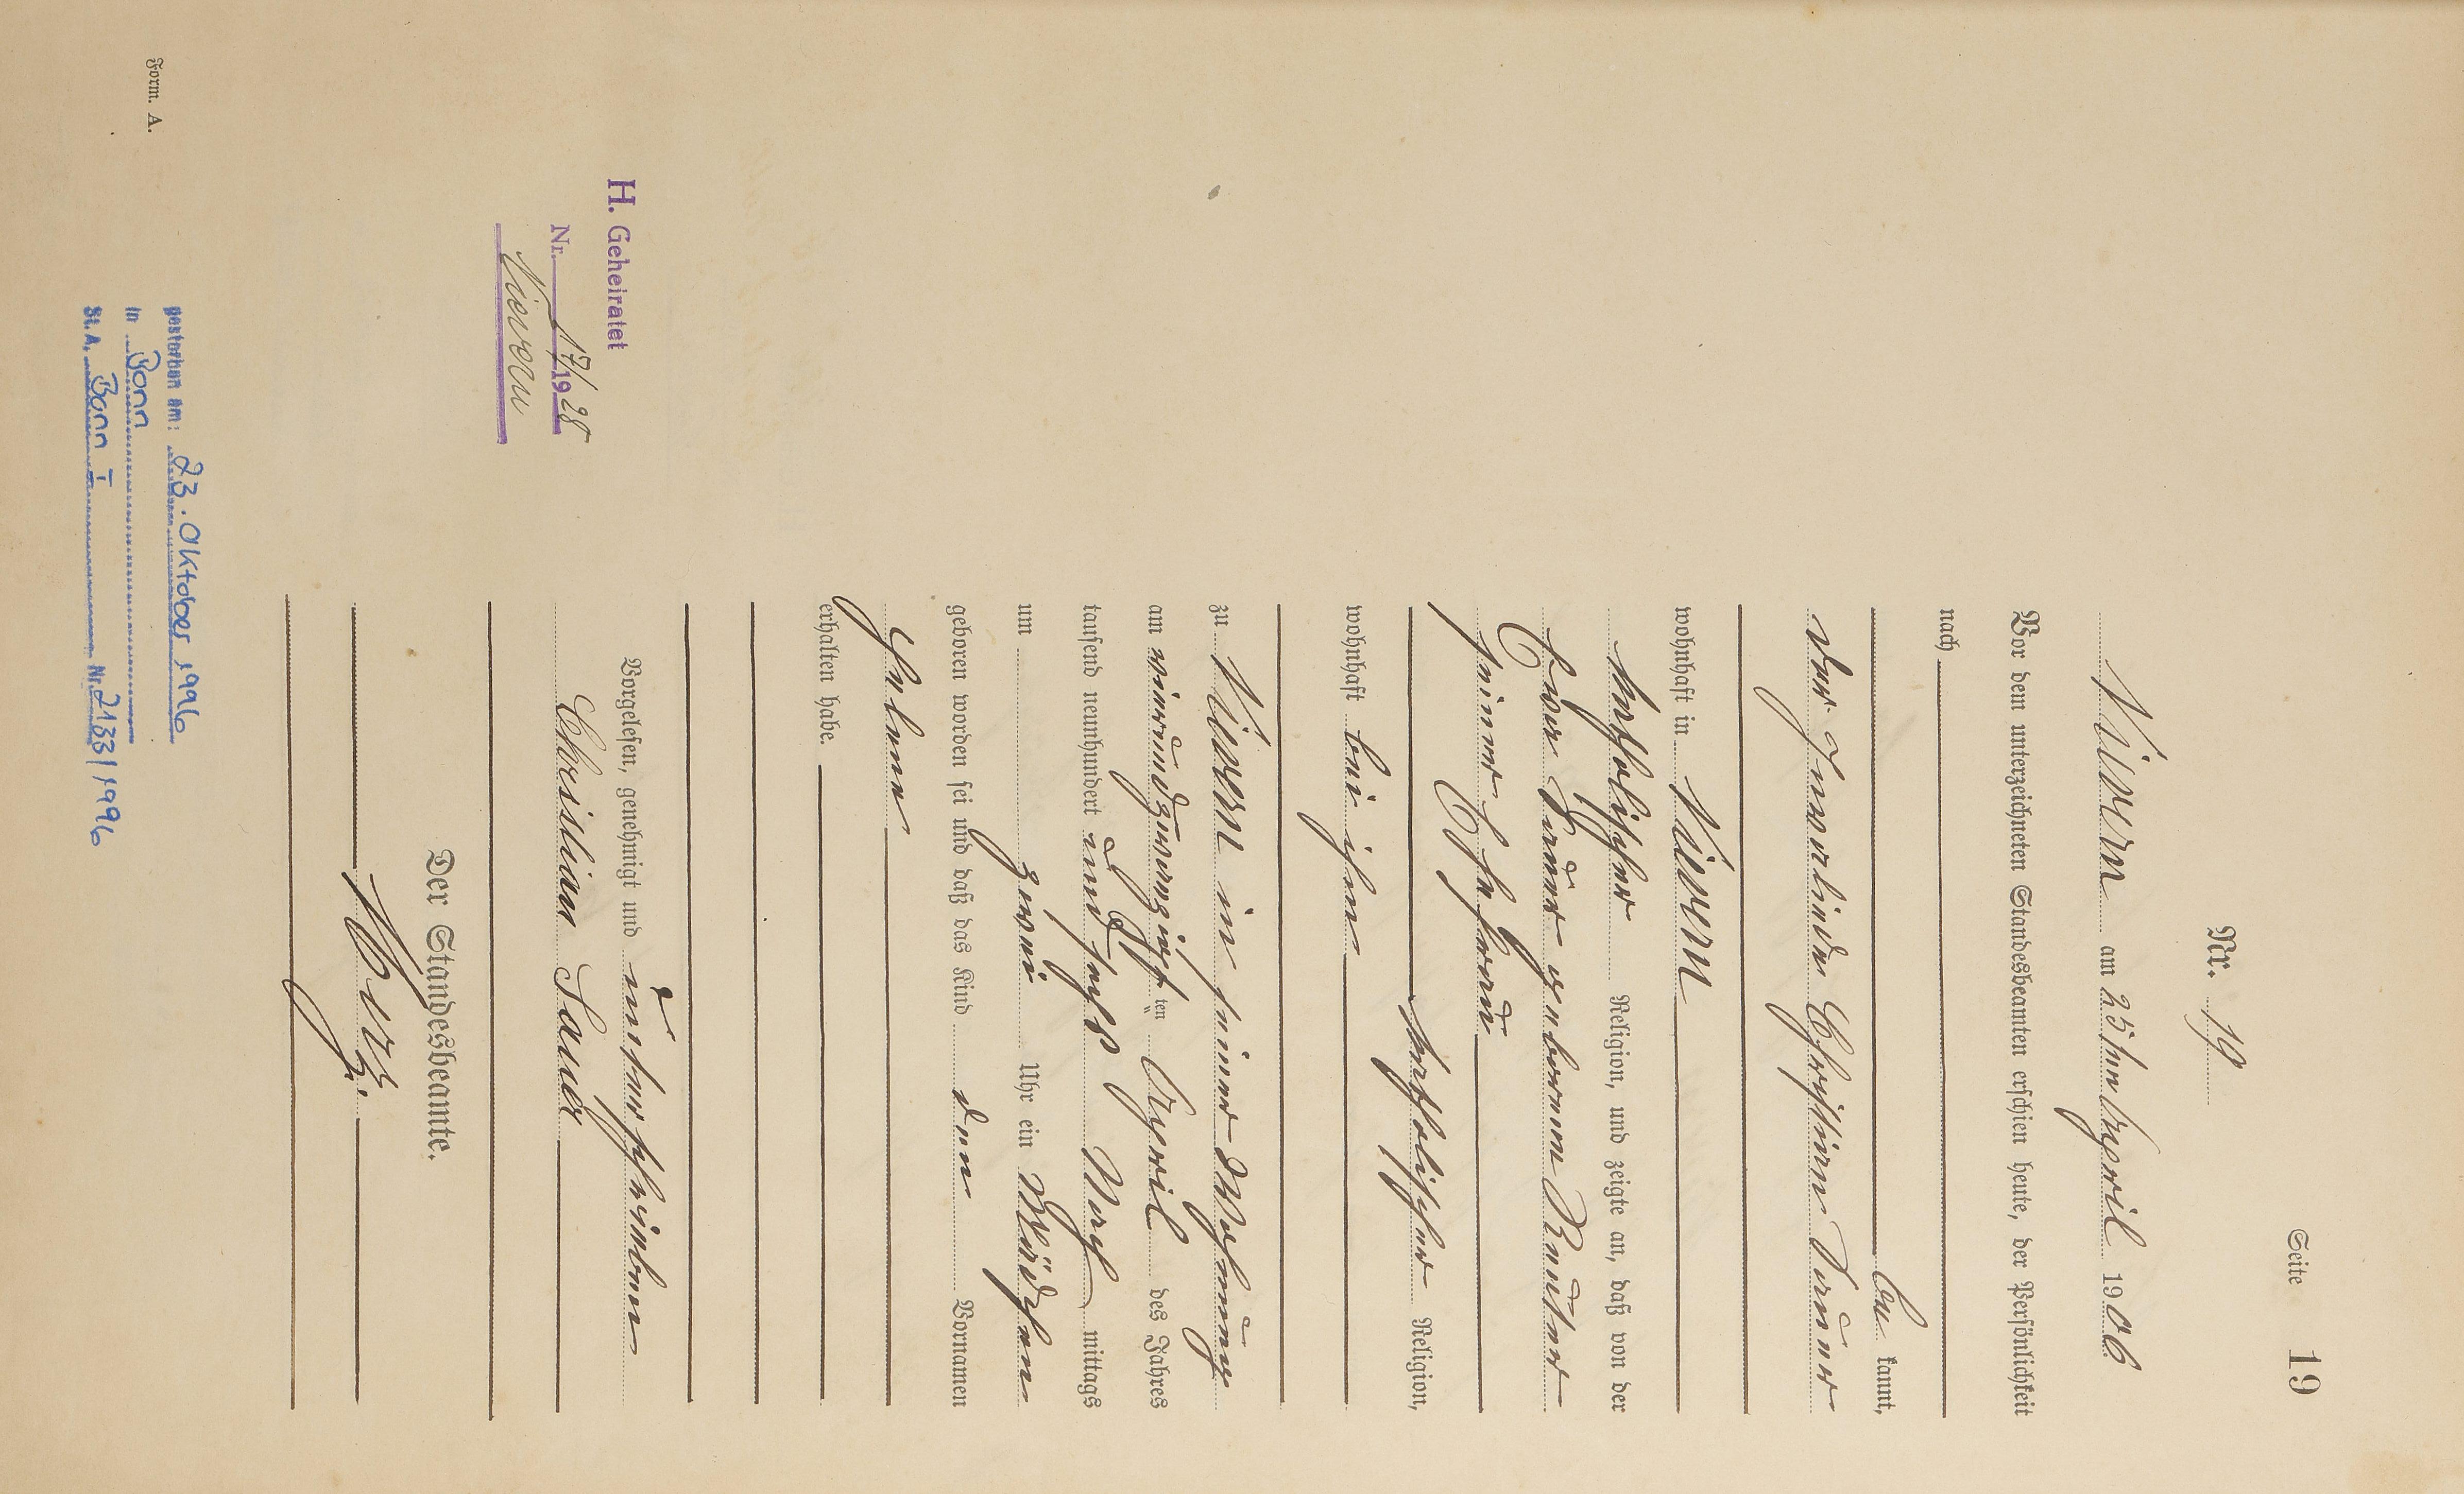 Seite 19
Nr. 19
Nievern am 25ten April 1906
Vor dem unterzeichneten Standesbeamten erschien heute, der Persönlichkeit
nach
be kannt,
der Invalide Christian Sauer
wohnhaft in Nievern
katholischer Religion, und zeigte an, daß von der
Sauer geborenen Reuter
seiner Ehefrau
katholischer Religion,
wohnhaft bei ihm
zu Nievern in seiner Wohnung
am vierundzwanzigsten April des Jahres
tausend neunhundert und sechs Nach mittags
um zwei Uhr ein Mädchen
geboren worden sei und daß das Kind den Vornamen
Helene
erhalten habe.
Vorgelesen, genehmigt und unterschrieben
Christian Sauer
Der Standesbeamte.
H. Geheiratet
Nr. 17/1928
Nievern
gestorben am: 23. Oktober 1996
in Bonn
St.A. Bonn I Nr. 2133/1996
Form. A.